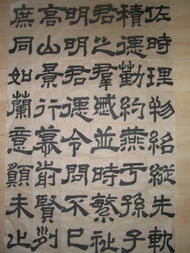 佐時理物紹縱先軌
積德勤約燕于孫子
君之羣慼並時繁祉
明明君德令問不已
高山景行慕前賢列
庶同如蘭意願未止